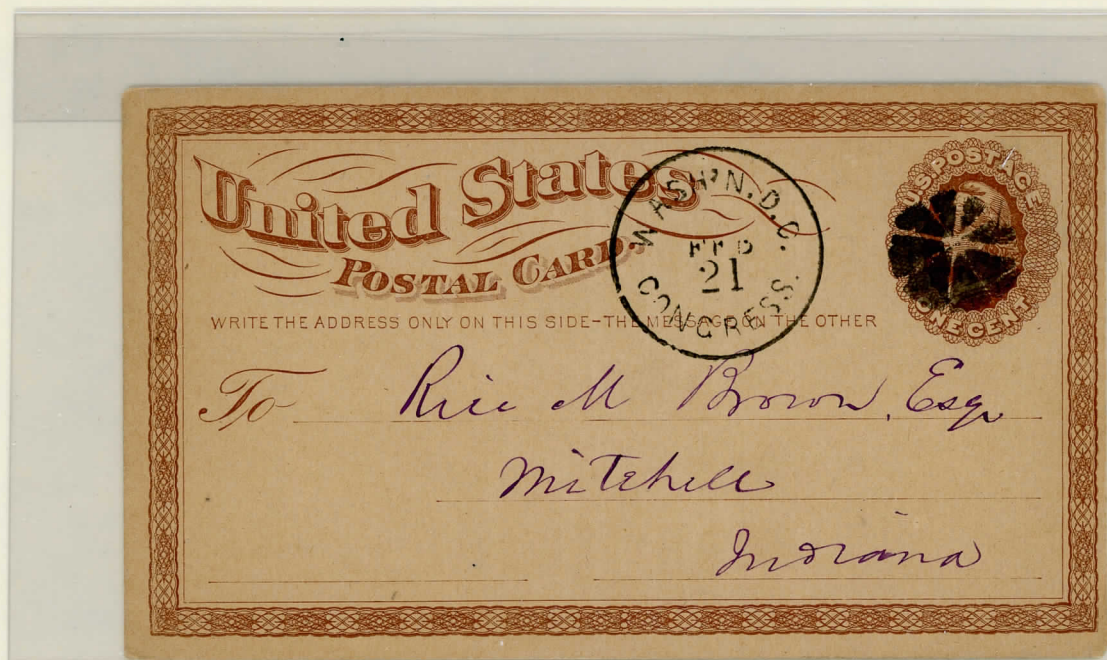 United States
POSTAL CARD.
WASH'N. D.C.
FEB
21
CONGRESS.
U.S. POSTAGE
ONE CENT
WRITE THE ADDRESS ONLY ON THIS SIDE-THE MESSAGE ON THE OTHER
To Rice M Brown, Esq.
Mitchell
Indiana